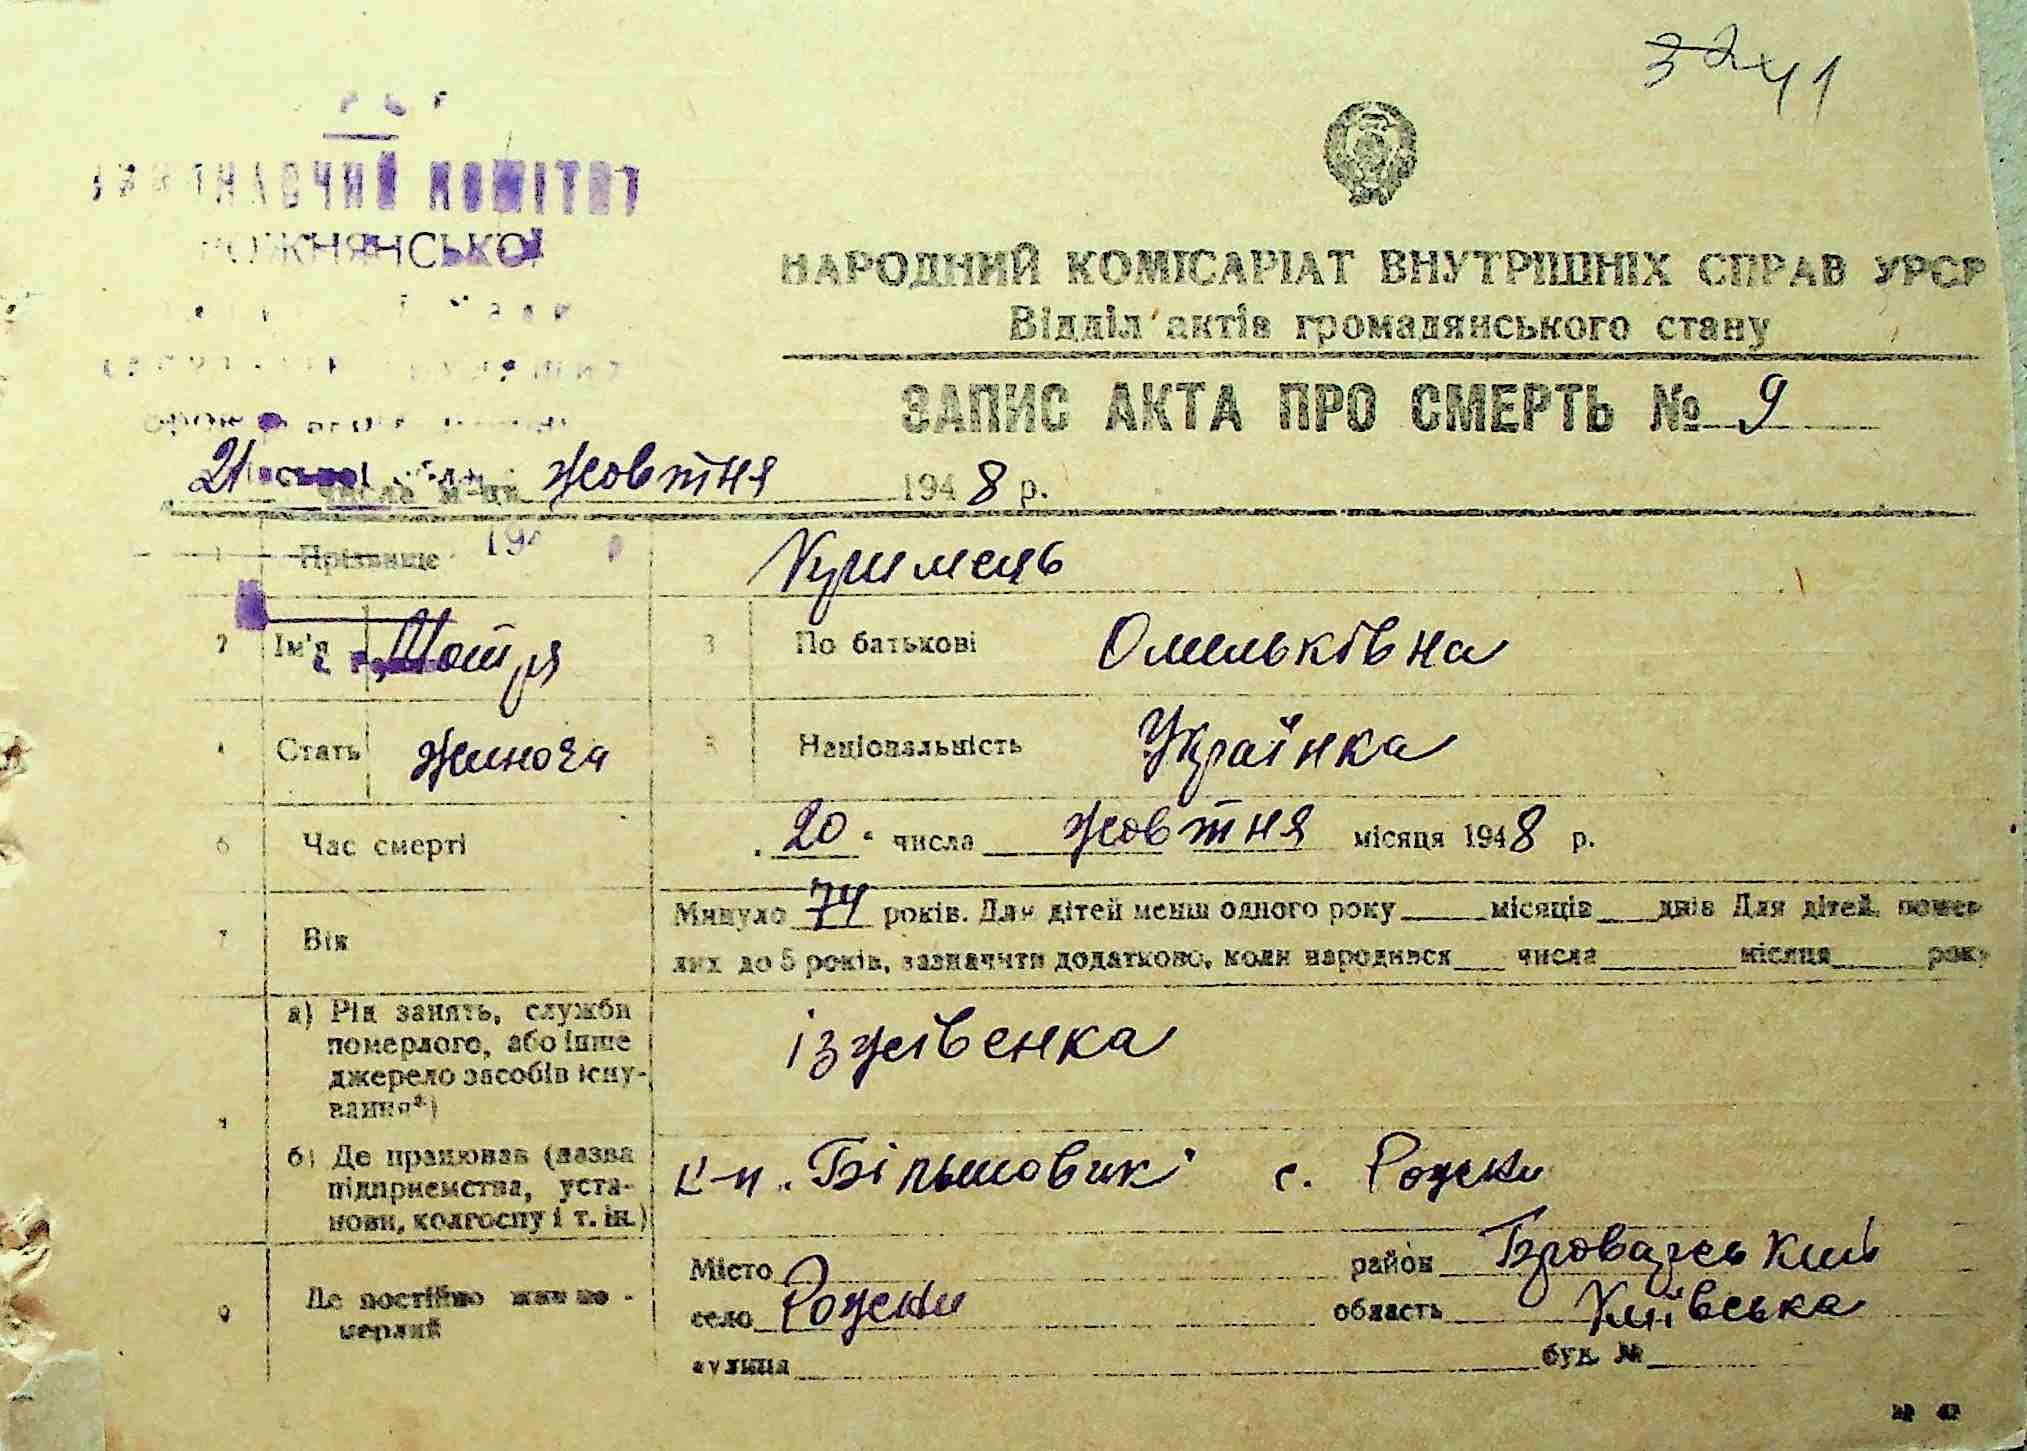 3241
РСР
ВИКОНАВЧИЙ КОМІТЕТ
РОЖНЯНСЬКОЇ
НАРОДНИЙ КОМІСАРІАТ ВНУТРІШНІХ СПРАВ УРСР
Відділ актів громадянського стану
ЗАПИС АКТА ПРО СМЕРТЬ № 9
21 числа м-ця жовтня 1948 р.
1 Прізвище
2 Ім'я Мотря 3 По батькові Омельківна
4 Стать жиноча 5 Національність Українка
6 Час смерті „20“ числа жовтня місяця 1948 р.
7 Вік Минуло 74 років. Для дітей менш одного року місяців днів Для дітей, помер-
лих до 5 років, зазначити додатково, коли народився числа місяця року
а) Рід занять, служби
померлого, або інше
джерело засобів існу-
вання*)
б) Де працював (назва
підприємства, уста-
нови, колгоспу і т. ін.)
к-п „Більшовик“ с. Рожни
9 Де постійно жив по-
мерлий
Місто район Броварський
село Рожни область Київська
вулиця буд. №